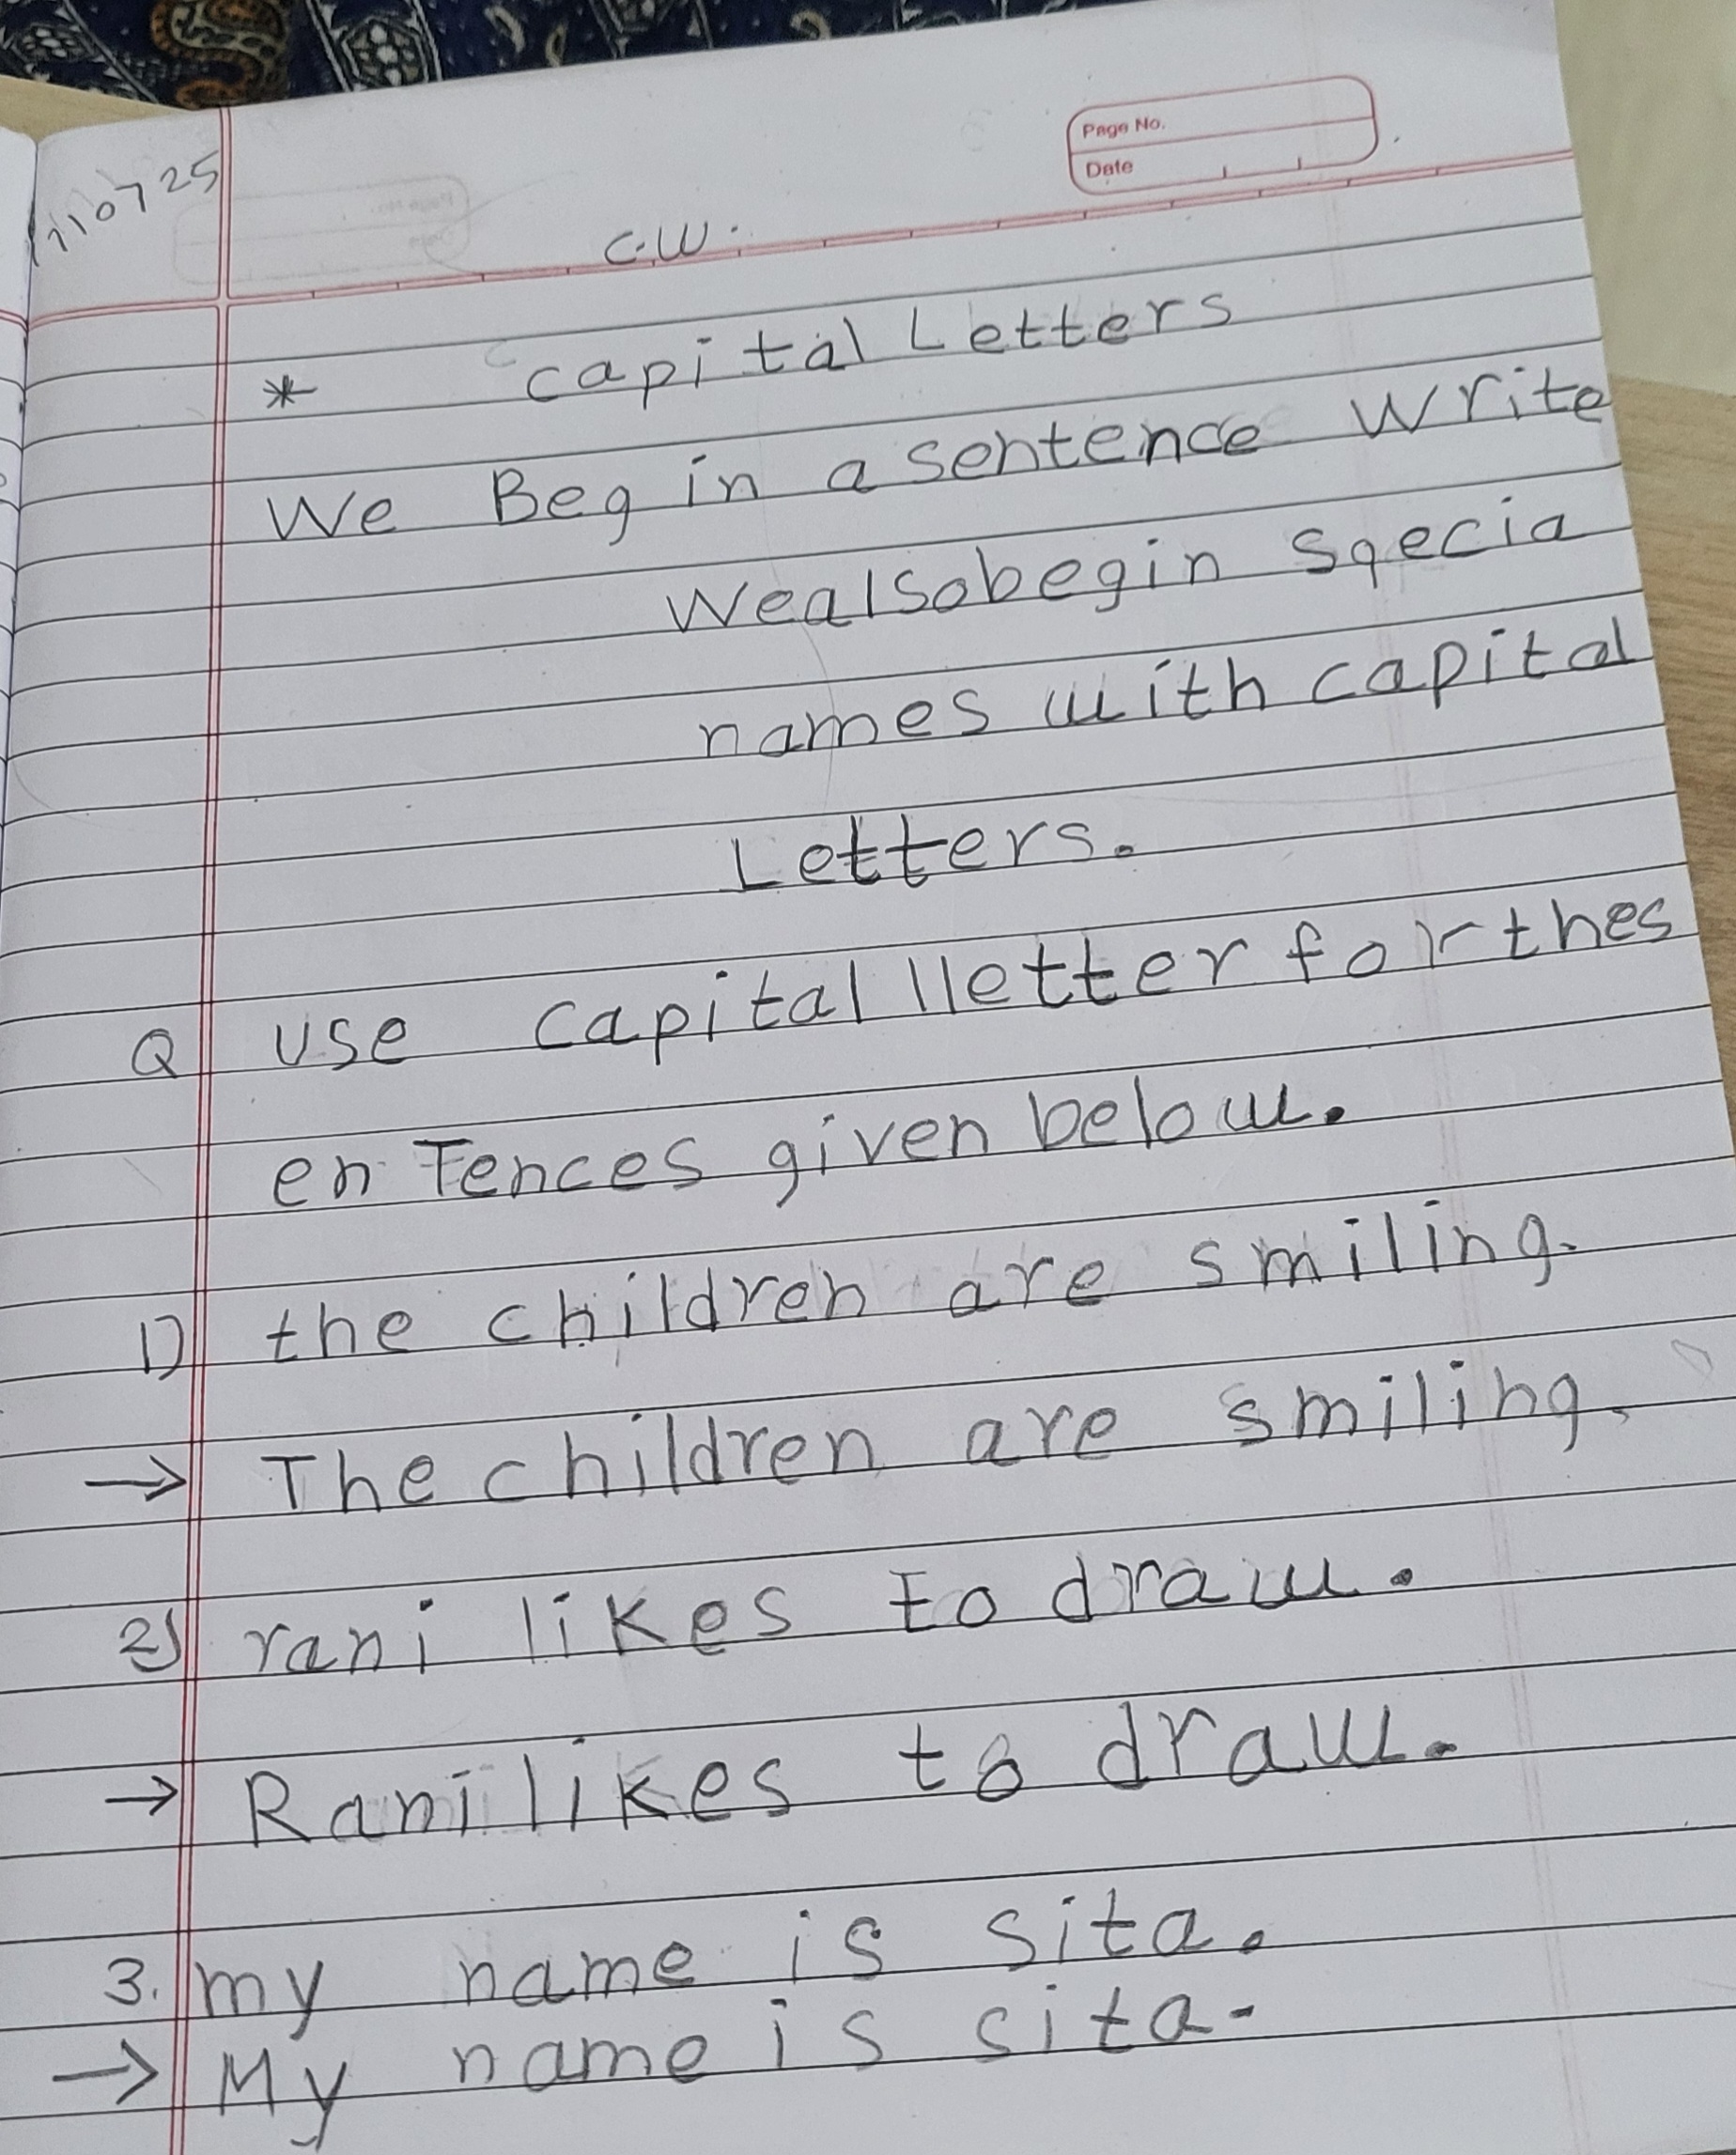 110725
Page No.
Date
C.W.
* capital Letters
We Begin a sentence write
Wealsobegin Sqecia
names with capital
Letters.
Q use capital lletter for thes
en Tences given below.
1) the children are smiling.
→ The children are smiling.
2) rani likes to draw.
→ Rani likes to draw.
3. my name is sita.
→ My name is sita.